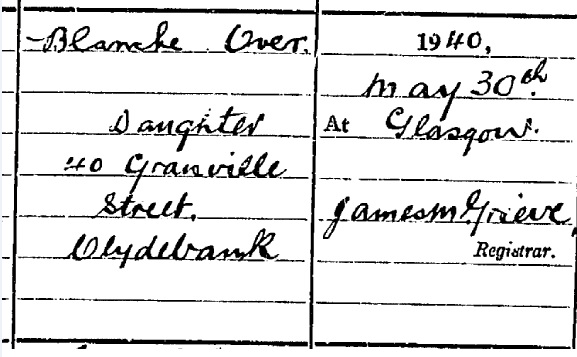 Blanche Over.
Daughter
40 Granville
Street,
Clydebank
1940,
May 30th
At Glasgow.
James M Grieve
Registrar.